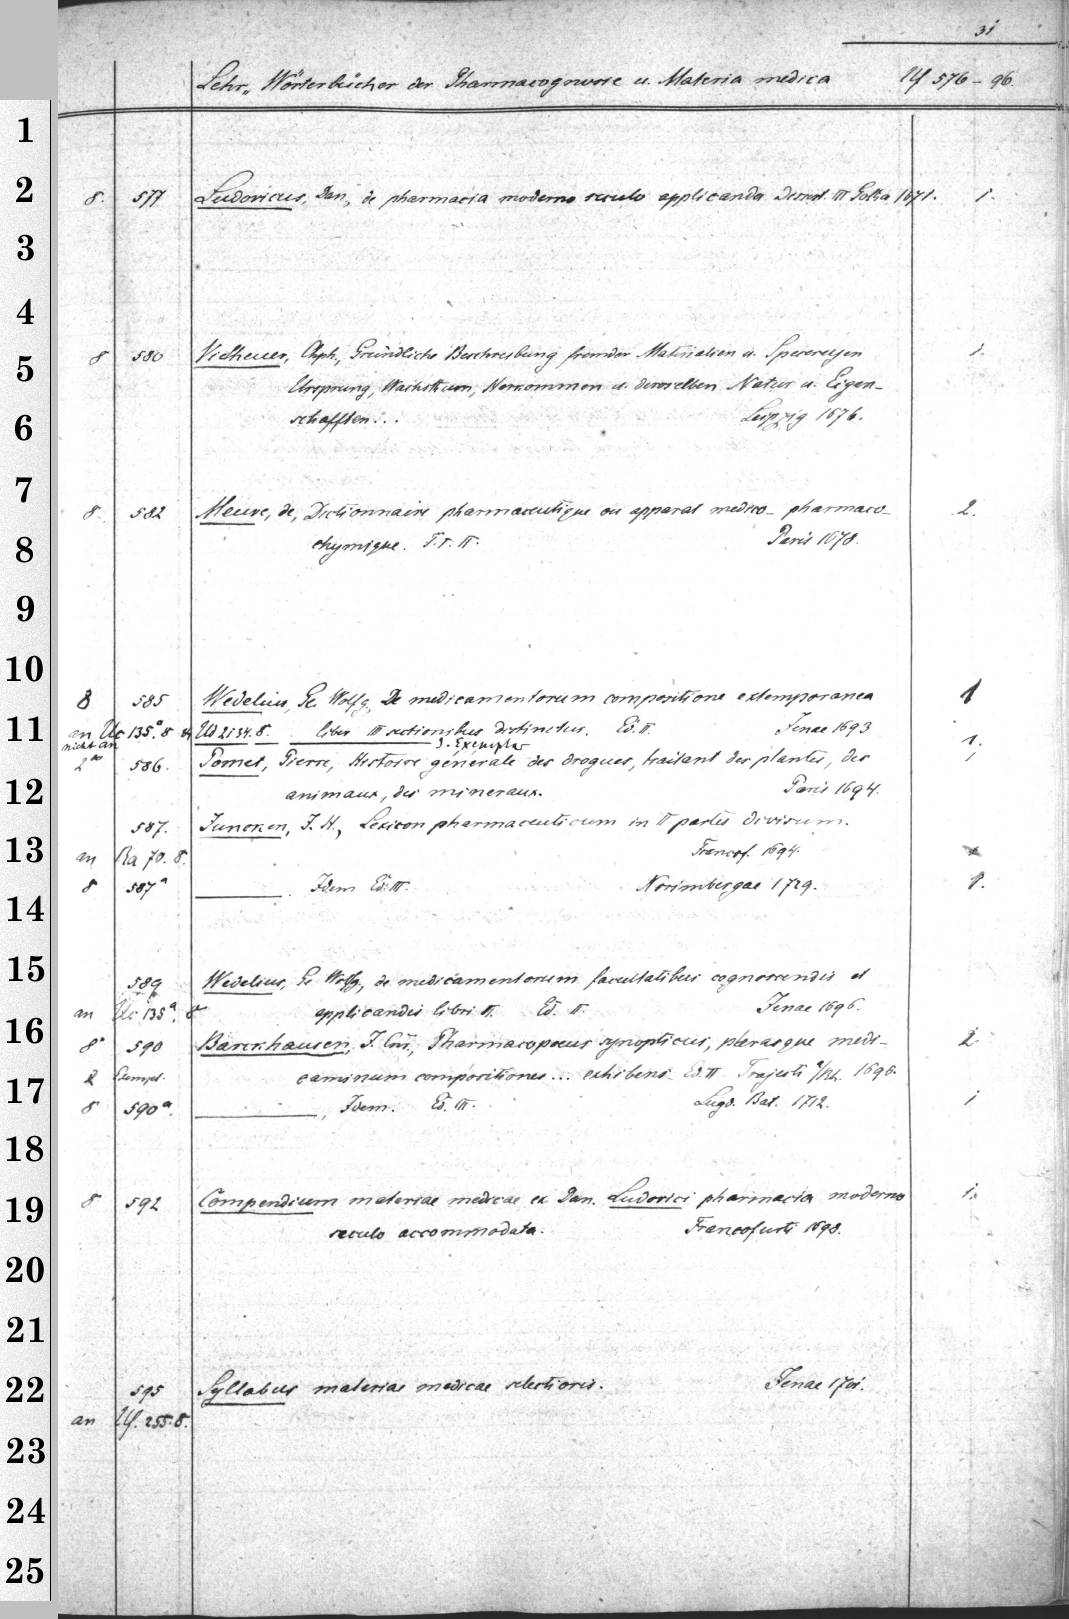 31
Lehr- Wörterbücher der Pharmacognosie u. Materia medica Uf 576-96.
1
2 8. 577 Ludovicus, Dan., de pharmacia moderno seculo applicanda Dissert. III Gotha 1671. 1.
3
4
5 8 580 Vielheuer, Chph., Gründliche Beschreibung fremder Materialien u. Specereyen 1.
Ursprung, Wachsthum, Herkommen u. deroselben Natur u. Eigen-
6 schafften... Leipzig 1676.
7
8. 582 Meuve, de, Dictionnaire pharmaceutique ou apparat medico- pharmaco- 2.
8 chymique. T. I. II. Paris 1678.
9
10
8 585 Wedelius, Ge. Wolfg., De medicamentorum compositione extemporanea 1
11 an Uc 135a. 8 Ud 2134. 8. liber III sectionibus distinctus. Ed. II. Jenae 1693
nicht an 3. Exemplar
2° 586. Pomet, Pierre, Histoire générale des drogues, traitant des plantes, des 1.
12 animaux, des mineraux. Paris 1694.
587. Juncken, J. H., Lexicon pharmaceuticum in II partes divisum.
13 an Ra 70. 8. Francof. 1694.
8 587a ———. Idem Ed. III. Norimbergae 1729. 1.
14
15 589 Wedelius, Ge Wolfg., de medicamentorum facultatibus cognoscendis et
an Uc 135a. 8 applicandis libri II. Ed. II. Jenae 1696.
16 8° 590 Barckhausen, J. Cnr., Pharmacopoeus synopticus, plerasque medi- 2.
2 Exempl. caminum compositiones... exhibens Ed. II Trajecti a/Rh. 1696.
17 8 590a. ———, Idem. Ed. III. Lugd. Bat. 1712. 1
18
19 8 592 Compendium materiae medicae ex Dan. Ludovici pharmacia moderno 1.
seculo accommodata. Francofurti 1698.
20
21
22 595 Syllabus materiae medicae selectioris. Jenae 1701.
an Uf. 255. 8.
23
24
25